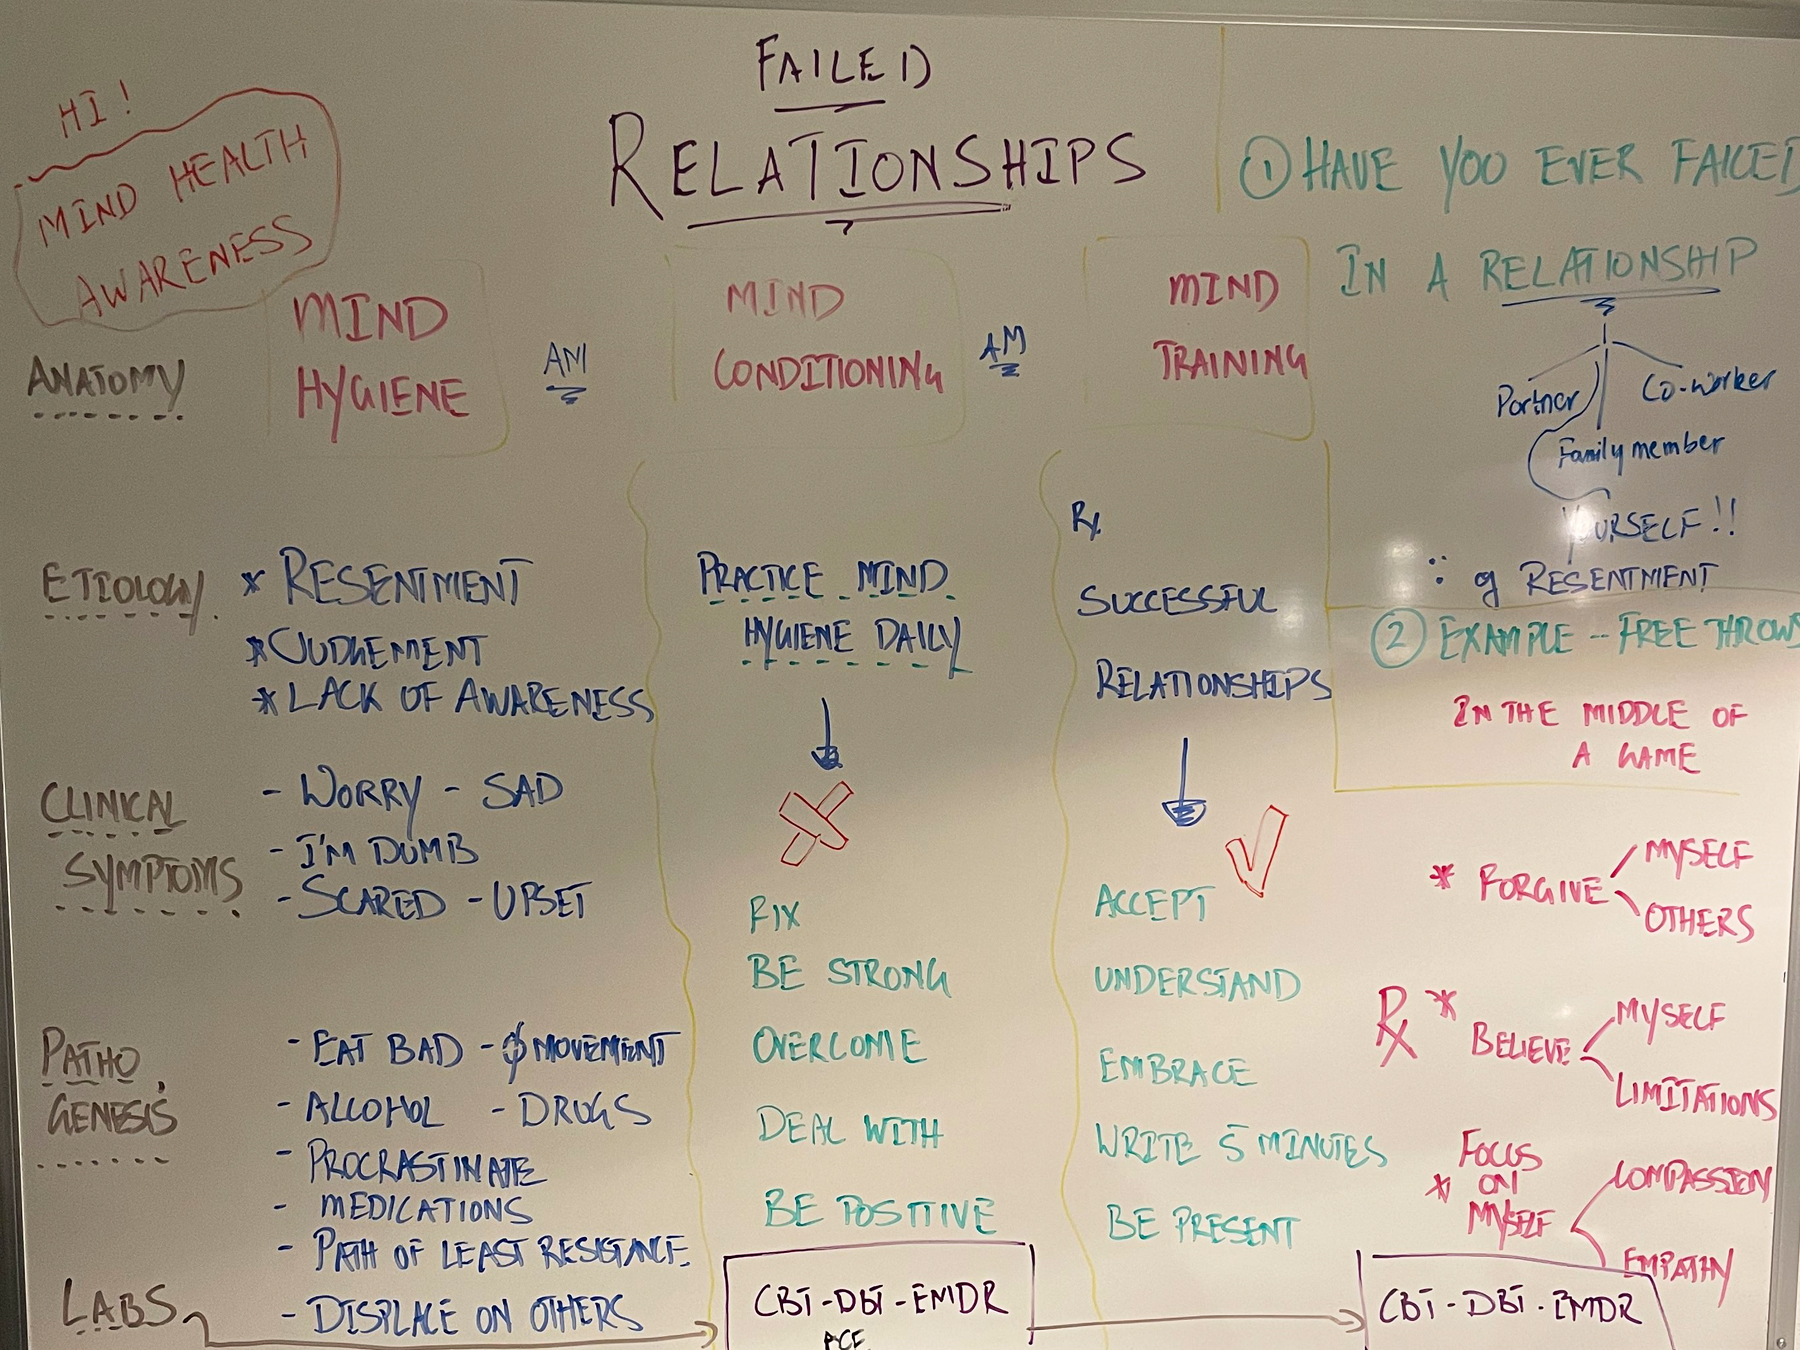 HI!
MIND HEALTH
AWARENESS
FAILED
RELATIONSHIPS
ANATOMY
MIND
HYGIENE
AM
MIND
CONDITIONING
AM
MIND
TRAINING
① HAVE YOU EVER FAILED
IN A RELATIONSHIP
Partner
Co-worker
Family member
YOURSELF!!
RESENTMENT
② EXAMPLE -- FREE THROWS
IN THE MIDDLE OF
A GAME
ETIOLOGY.
* RESENTMENT
* JUDGEMENT
* LACK OF AWARENESS
PRACTICE MIND
HYGIENE DAILY
Rx
SUCCESSFUL
RELATIONSHIPS
CLINICAL
SYMPTOMS
- WORRY - SAD
- I'M DUMB
- SCARED - UPSET
PATHO
GENESIS
- EAT BAD - Ø MOVEMENT
- ALCOHOL - DRUGS
- PROCRASTINATE
- MEDICATIONS
- PATH OF LEAST RESISTANCE
- DISPLACE ON OTHERS
FIX
BE STRONG
OVERCOME
DEAL WITH
BE POSITIVE
ACCEPT
UNDERSTAND
EMBRACE
WRITE 5 MINUTES
BE PRESENT
* FORGIVE
MYSELF
OTHERS
Rx
* BELIEVE
MYSELF
LIMITATIONS
* FOCUS
ON
MYSELF
COMPASSION
EMPATHY
LABS
CBT - DBT - EMDR
CBT - DBT - EMDR